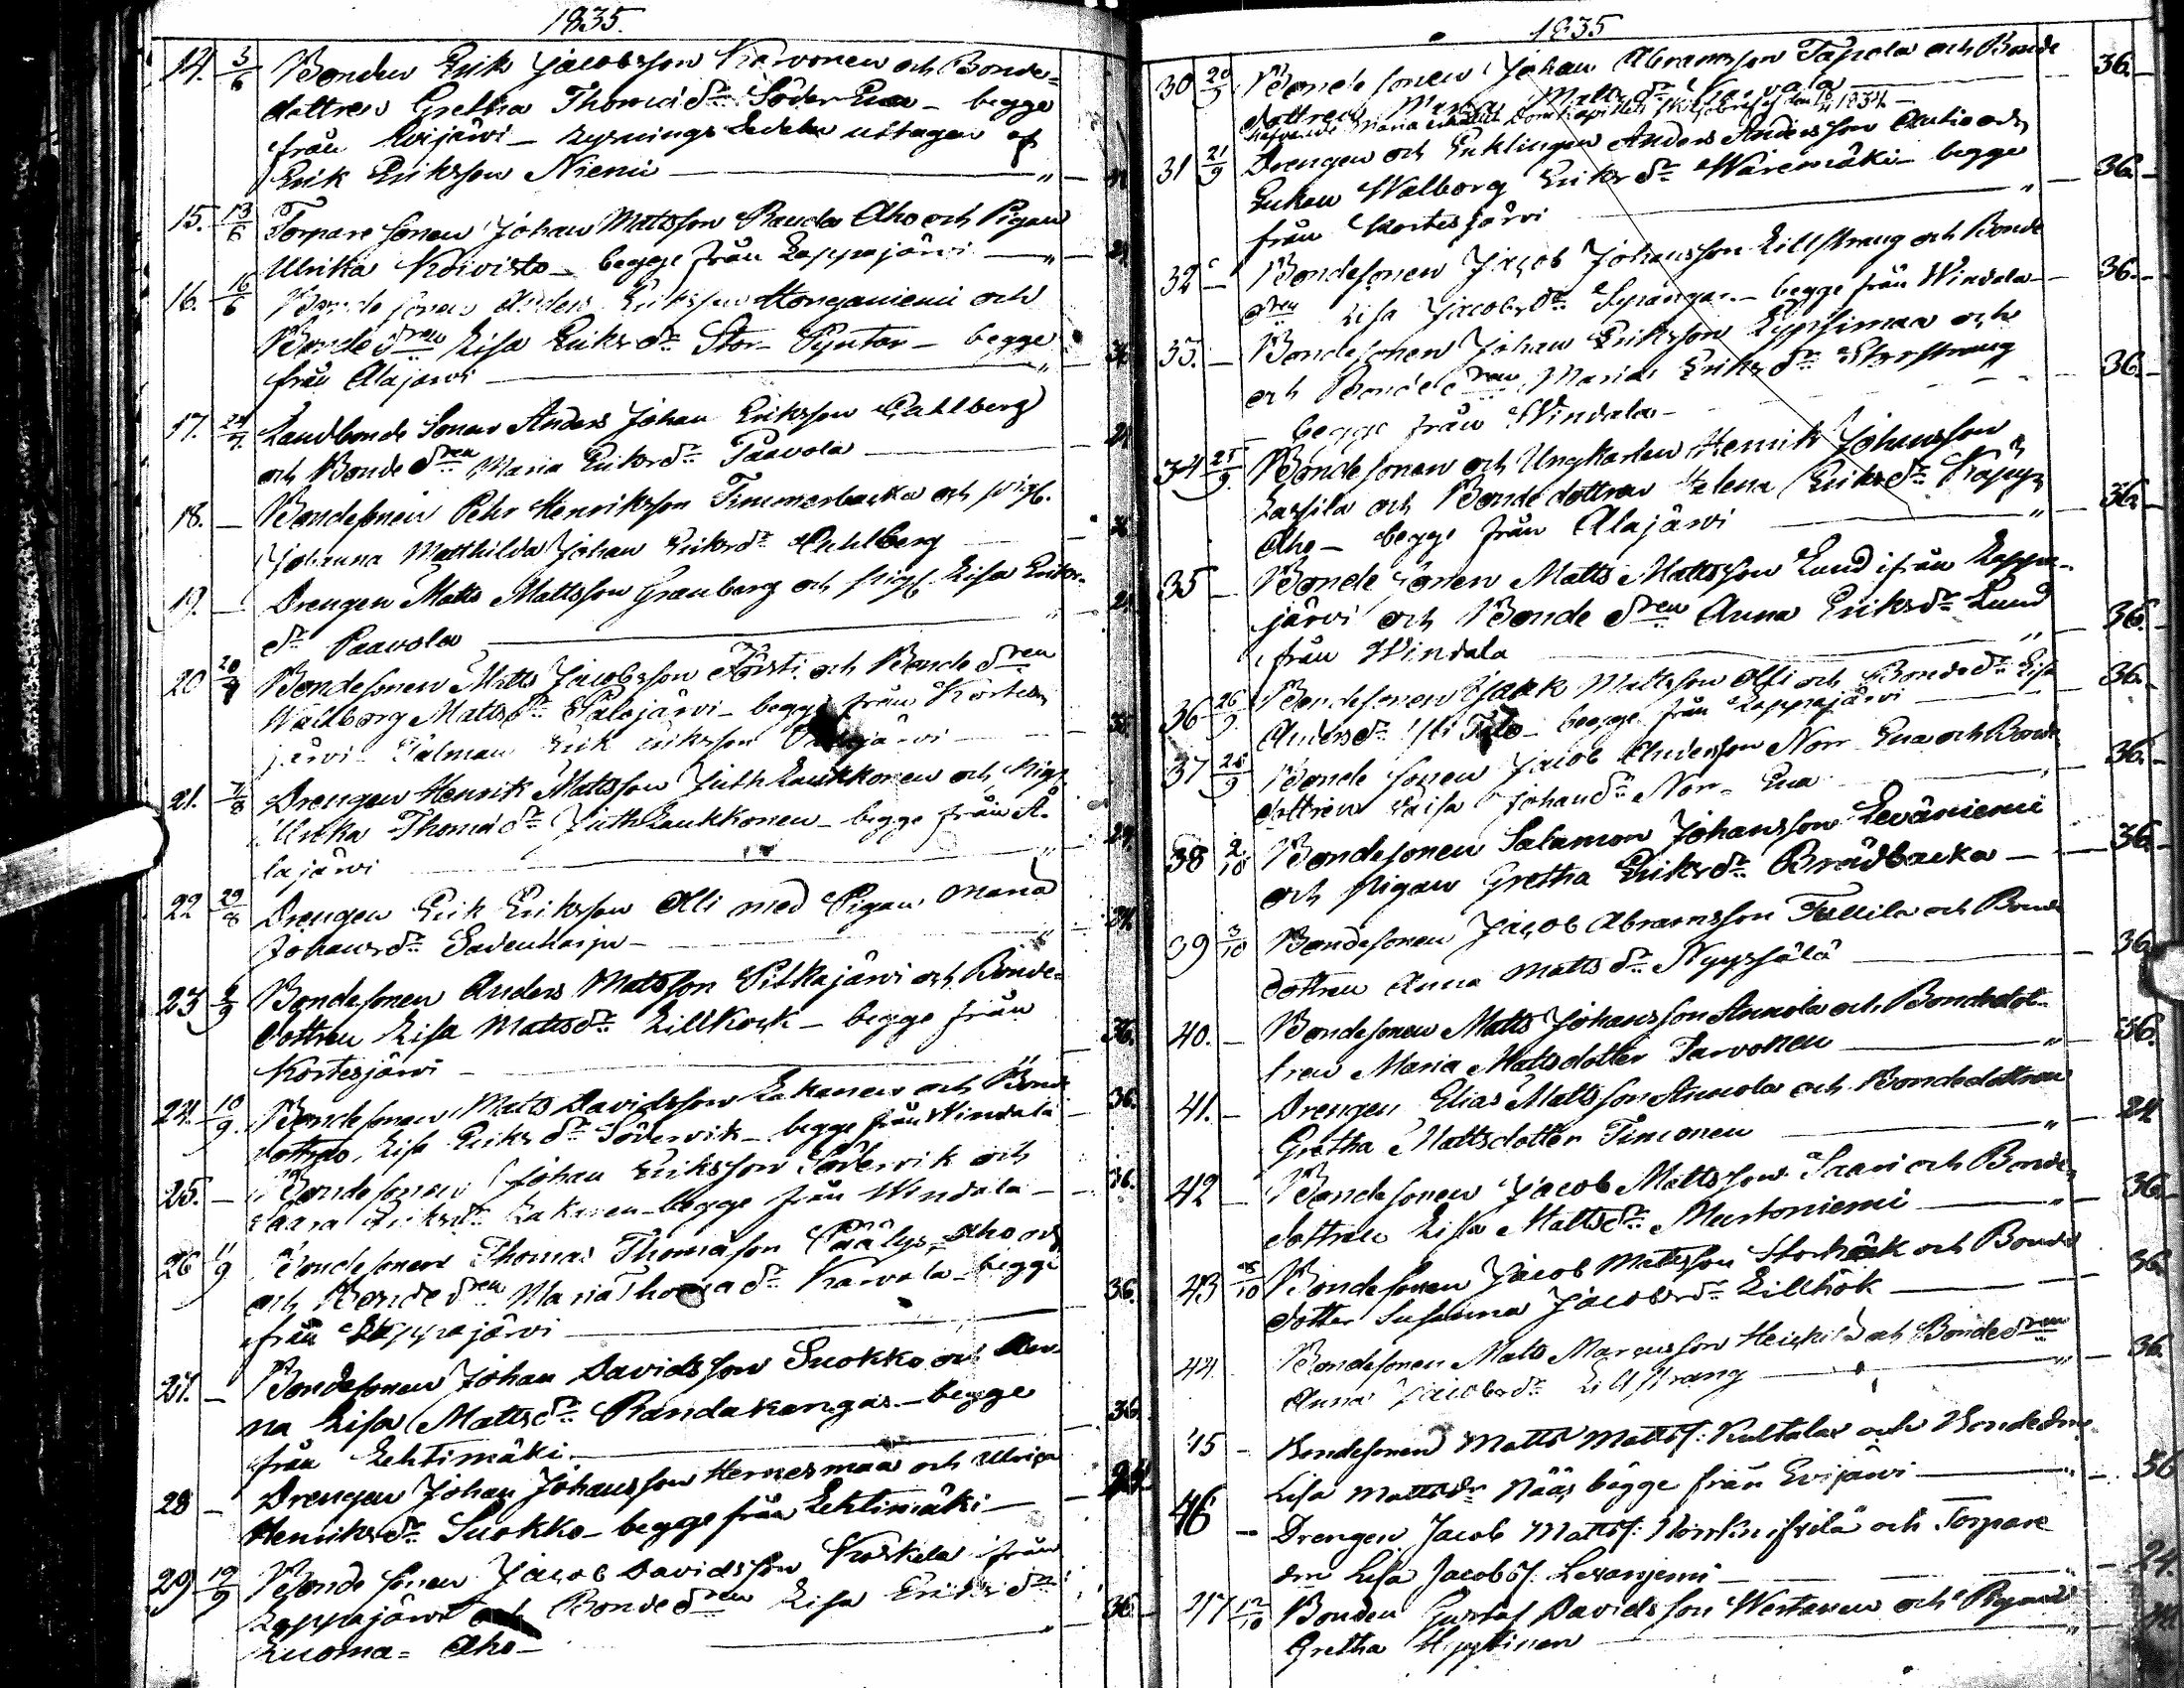 1835.
14. 3/6 Bonden Erik Jacobsson Karvonen och Bonde=
dottren Gretha Thomæ dr Söder Ena - begge
från Evijärvi - Lysnings Sedeln uttagen af
Erik Eriksson Niemi — "
15. 13/6 Torpare sonen Johan Mattsson Rauda Aho och Pigan
Ulrika Koivisto - begge från Lappajärvi — " 24.
16. 16/6 Bonde sonen Anders Eriksson Honganiemi och
Bonde dren Lisa Eriks dr Stor- Pyntar - begge
från Alajärvi — " 36.
17. Landbonde Sonen Anders Johan Eriksson Pahlberg
och Bonde dren Maria Eriks dr Paavola — 24.
18. — Bondesonen Pehr Henriksson Timmerbacka och pig.
Johanna Matthilda Johan Eriks dr Pahlberg
19. — Drengen Matts Mattsson Granberg och pig. Lisa Eriks
dr Paavola — " 24.
20 Bondesonen Matts Jacobsson och Bonde dren
Walborg Matts dr Salojärvi - begge från Kortes
järvi Talman Erik Eriksson
21. 7/8 Drengen Henrik Mattsson Juth Laukkonen och pig.
Ulrika Thomæ dr Juth Laukkonen - begge från A-
lajärvi — " 24.
22 29/8 Drengen Erik Eriksson Olli med Pigan Maria
Johans dr Savenharju — " 24.
23 Bondesonen Anders Mattsson Pitkajärvi och Bonde=
dottren Lisa Matts dr Lillkock - begge från
Kortesjärvi — " 36.
24. 10/9 Bondesonen Matts Davidsson Lakanen och Bonde
dottren Lisa Eriks dr Södervik - begge från Windala — 36.
25. — Bondesonen Johan Eriksson Södervik och
Saara Eriks dr Lakanen - begge från Windala — 36.
26 11/9 Bondesonen Thomas Thomasson Päälys- Aho och
och Bonde dren Maria Thomæ dr Karvala - begge
från Lappajärvi — 36.
27. — Bondesonen Johan Davidsson Suokko och An-
na Lisa Matts dr Randakangas - begge
från Lehtimäki. — 36.
28 — Drengen Johan Johansson Hernesmaa och Ulrica
Henriks dr Suokko - begge från Lehtimäki — 24
29 19/9 Bonde sonen Jacob Davidsson Koskela ifrån
Lappajärvi och Bonde dren Lisa Eriks dr
Luoma= Aho — " 36.
1835
30 20/9 Bonde sonen Johan Abramsson Tapola och Bonde 36.
dottren Maria Matts dr Karvala
31 21/9 Drengen och Enklingen Anders Andersson Antio och
Enkan Walborg Eriks dr Warismäki - begge 36.
från Kortesjärvi — "
32 — Bondesonen Jacob Johansson Lillstrang och Bonde
dren Lisa Jacobs dr Sprangar - begge från Windala — 36.
33. — Bondesonen Johan Eriksson Kypsimaa och
och Bonde dren Maria Eriks dr Storstrang 36.
begge från Windala —
34 25/9 Bondesonen och Ungkarlen Henrik Johansson
Lassila och Bondedottren Helena Eriks dr
Aho - begge från Alajärvi — " 36.
35 — Bonde sonen Matts Mattsson Lund ifrån Lappa-
järvi och Bonde dren Anna Eriks dr Lund
från Windala — " 36.
36 26/9 Bondesonen Isaak Mattsson Olli och Bonde dr Lisa 36.
Anders dr Yli Talo - begge från Lappajärvi
37 28/9 Bonde sonen Jacob Andersson Norr Ena och Bonde 36.
dottren Caisa Johan dr Norr- Ena — "
38 2/10 Bondesonen Salamon Johansson Levâniemi
och pigan Gretha Eriks dr Brûdbacka — 36.
39 3/10 Bondesonen Jacob Abramsson och Bonde
dottren Anna Matts dr Nyyssälä — 36
40. — Bondesonen Matts Johansson Annola och Bondedot-
tren Maria Mattsdotter Tarvonen — " 36.
41. — Drengen Elias Mattsson Annola och Bondedottren
Gretha Mattsdotter Timonen — " 24
42 — Bondesonen Jacob Mattsson Saari och Bonde
dottren Lisa Matts dr Murtoniemi — " 36.
43 Bondesonen Jacob Mattsson Storhöök och Bonde
dotter Susanna Jacobs dr Lillhök — 36.
44 Bondesonen Matts Marcusson Heickilä och Bonde dren
Anna Jacobs dr Lillstrang — " 36.
45 — Bondesonen Matts Matts: Kultalax och Bonde dren
Lisa Matts dr Nääs begge från Evijärvi — " 36
46 — Drengen Jacob Matts: och Torpare
drn Lisa Jacobs: Levaniemi — " 24.
47 12/10 Bonden Gustaf Davidsson Wertanen och Pigan
Gretha Hyytinen — "